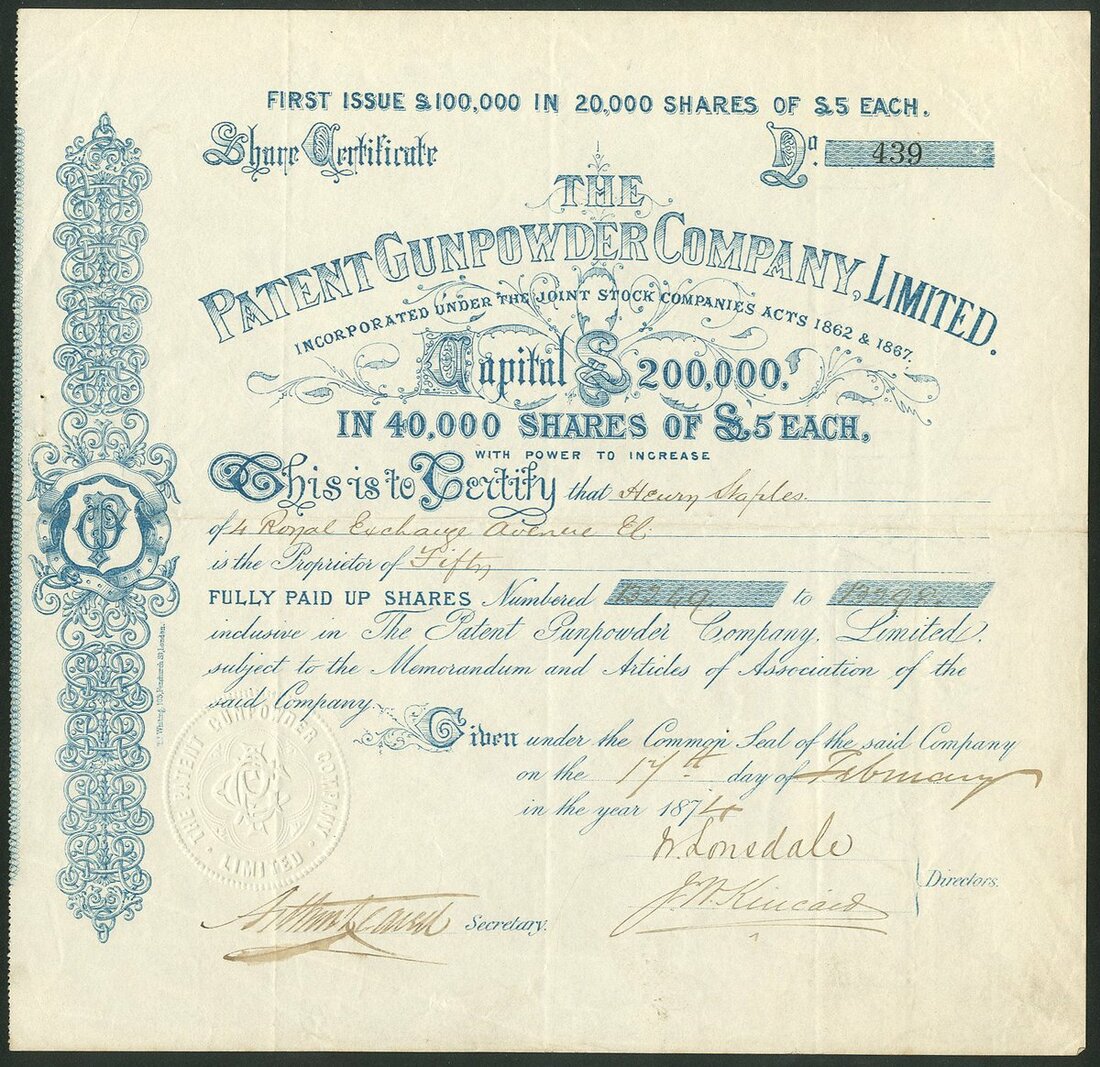 FIRST ISSUE £100,000 IN 20,000 SHARES OF £5 EACH.
Share Certificate No. 439
THE
PATENT GUNPOWDER COMPANY, LIMITED.
INCORPORATED UNDER THE JOINT STOCK COMPANIES ACTS 1862 & 1867.
Capital £200,000.
IN 40,000 SHARES OF £5 EACH,
WITH POWER TO INCREASE
This is to Certify that Henry Staples
of 4 Royal Exchange Avenue EC
is the Proprietor of Fifty
FULLY PAID UP SHARES Numbered to
inclusive in The Patent Gunpowder Company, Limited,
subject to the Memorandum and Articles of Association of the
said Company.
Given under the Common Seal of the said Company
on the 17th day of February
in the year 1874
W. Lonsdale
J. W. Kincaid
Directors.
Secretary.
THE PATENT GUNPOWDER COMPANY LIMITED
TP
Whiting, 103, Fenchurch St, London.